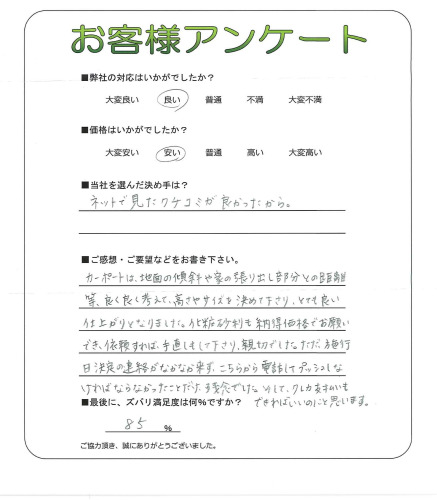 お客様アンケート
■弊社の対応はいかがでしたか?
大変良い 良い 普通 不満 大変不満
■価格はいかがでしたか?
大変安い 安い 普通 高い 大変高い
■当社を選んだ決め手は?
ネットで見たクチコミが良かったから。
■ご感想・ご要望などをお書き下さい。
カーポートは、地面の傾斜や家の張り出し部分との距離
等、良く良く考えて、高さやサイズを決めて下さり、とても良い
仕上がりとなりました。化粧砂利も納得価格でお願い
でき、依頼すれば、手直しもして下さり、親切でした。ただ、施行
日決定の連絡がなかなか来ず、こちらから電話してプッシュしな
ければならなかったことだけ残念でした。そして、クレカ支払いも
できればいいのにと思います。
■最後に、ズバリ満足度は何%ですか?
85 %
ご協力頂き、誠にありがとうございました。